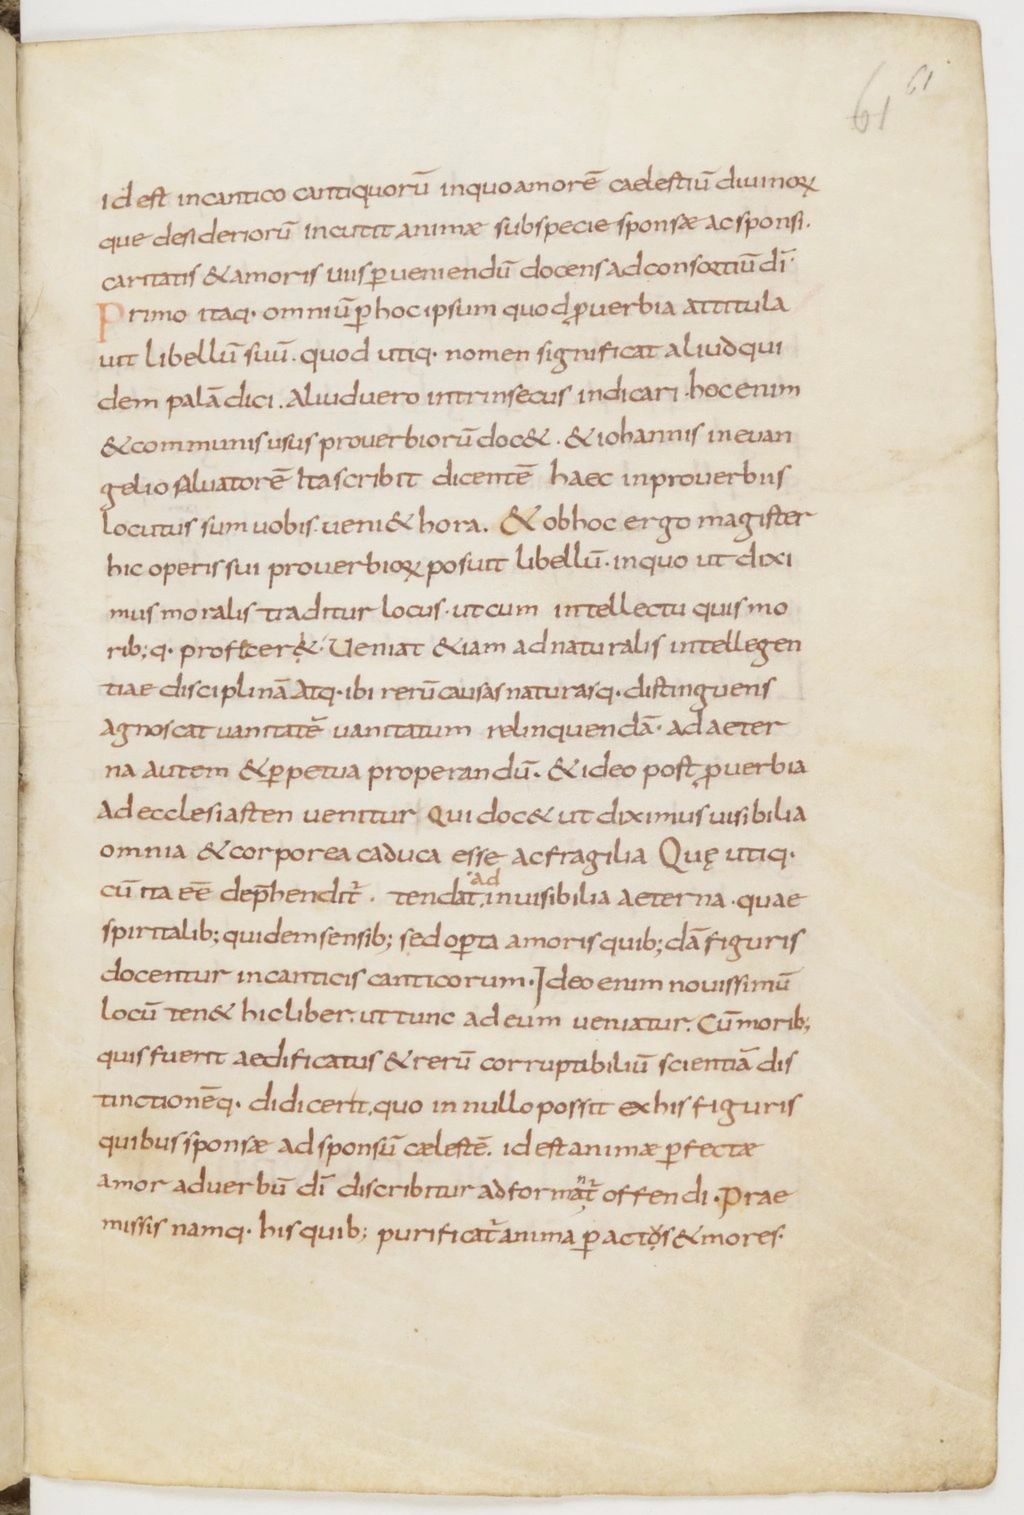 61 61
id est incantico cantiquorū inquoamorē caelestiū diuinoꝝ
que desideriorū incutit animæ subspecie sponsæ acsponsi.
caritatis &amoris uiisꝑueniendū docens adconsortiū dī
Primo itaq· omniūꝑhocipsum quodꝓuerbia attitula
uit libellū suū. quod utiq· nomen significat aliud qui
dem palā dici. aliuduero intrinsecus indicari· hocenim
&communis usus prouerbiorū doc&· &iohannis ineuan
gelio saluatorē ita scribit dicentē haec inprouerbiis
locutus sum uobis· ueni& hora. & obhoc ergo magister
hic operis sui prouerbioꝝ posuit libellū· inquo ut dixi
mus moralis traditur locus· ut cum intellectu quis mo
rib;q· proficer&· Ueniat &iam adnaturalis intellegen
tiae disciplinā Atq· ibi rerū causas naturasq· distinguens
agnoscat uanitatē uanitatum relinquendā· ad aeter
na autem &ꝑpetua properandū. &ideo post ꝓuerbia
ad ecclesiasten uenitur qui doc& ut diximus uisibilia
omnia &corporea caduca esse ac fragilia Quę utiq·
cū ita eē dep̄henditr̄· tendat ·ad inuisibilia aeterna· quae
spiritalib; quidem sensib; sed oꝑta amoris quib;dā figuris
docentur incanticis canticorum· Ideo enim nouissimū
locū ten& hic liber. ut tunc ad eum ueniatur. Cū morib;
quis fuerit aedificatus &rerū corruptibiliū scientiā dis
tinctionēq· didicerit, quo in nullo possit ex his figuris
quibus sponsæ ad sponsū cælestē. id est animæ ꝑfectæ
amor ad uerbū dī discribitur ad formantr̄ offendi· Prae
missis namq· his quib; purificatr̄ anima ꝑ actos &mores·